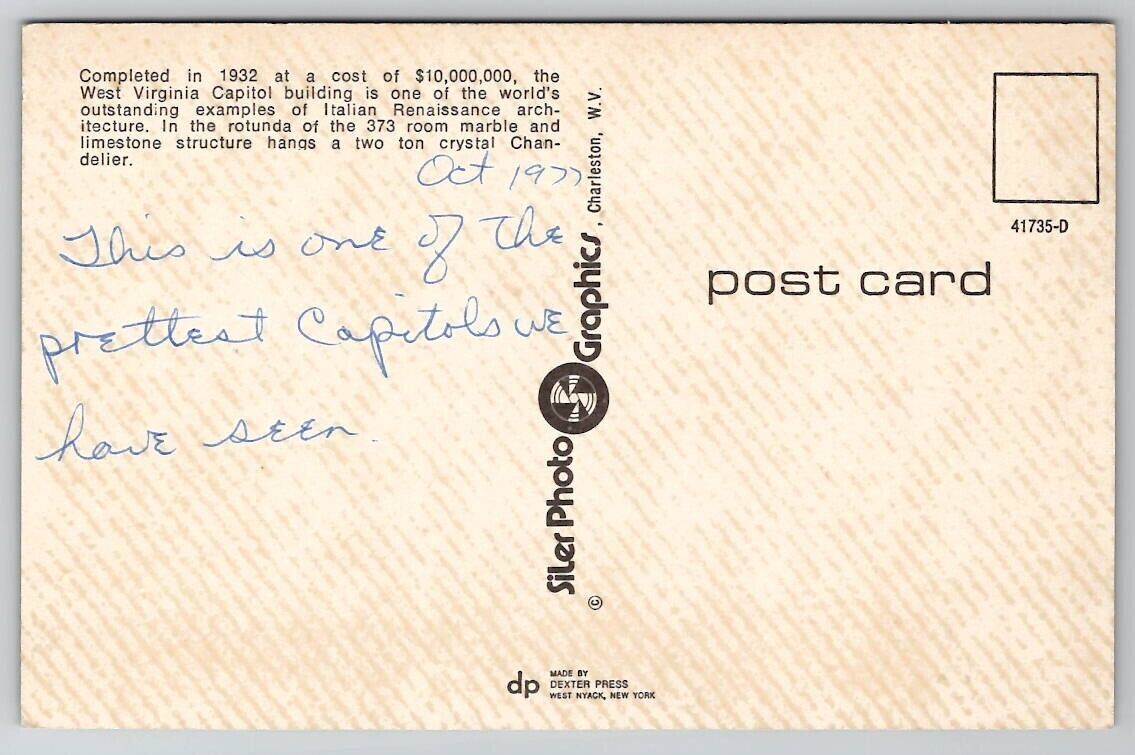 Completed in 1932 at a cost of $10,000,000, the
West Virginia Capitol building is one of the world's
outstanding examples of Italian Renaissance arch-
itecture. In the rotunda of the 373 room marble and
limestone structure hangs a two ton crystal Chan-
delier.
Oct 1977
This is one of the
prettest Capitols we
have seen.
© Siler Photo Graphics, Charleston, W.V.
41735-D
post card
dp
MADE BY
DEXTER PRESS
WEST NYACK, NEW YORK